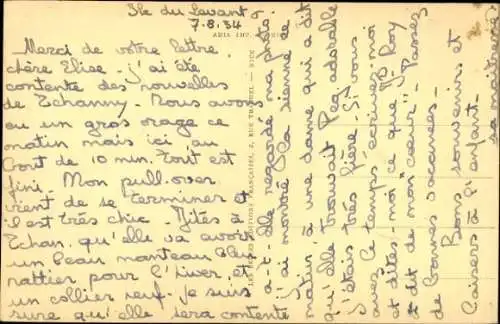 Ile du Levant
7.8.34
Merci de votre lettre
chère Elise - j'ai été
contente des nouvelles
de Tchanny. Nous avons
eu un gros orage ce
matin mais ici au
bout de 10 min. tout est
fini. Mon pull-over
vient de se terminer et
il est très chic. Dites à
Tchan. qu'elle va avoir
un beau manteau bleu
rattier pour l'hiver, et
un collier neuf. Je suis
sûre qu'elle sera contente
a-t-elle regardé ma photo
j'ai montré la sienne ce
matin à une dame qui a dit
qu'elle trouvait Peg adorable
j'étais très fière. Si vous
avez le temps écrivez-moi
et dites-moi ce que Roy
a dit de mon "coeur". Passez
de bonnes vacances.
Bons souvenirs et
baisers à l'enfant.